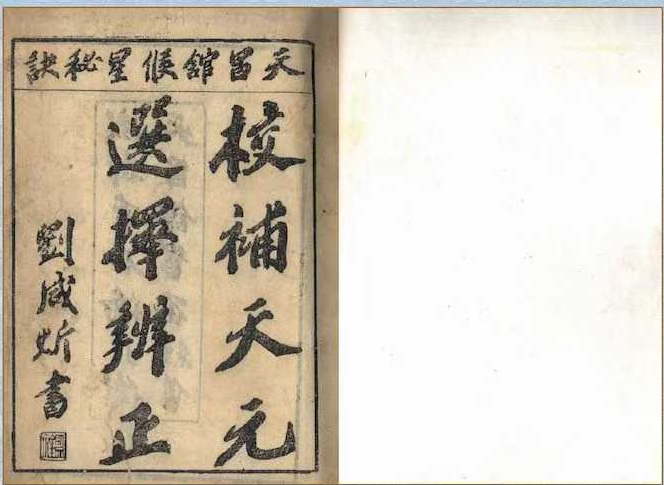 天昌館候星秘訣
校補天元
選擇辨正
劉咸炘書